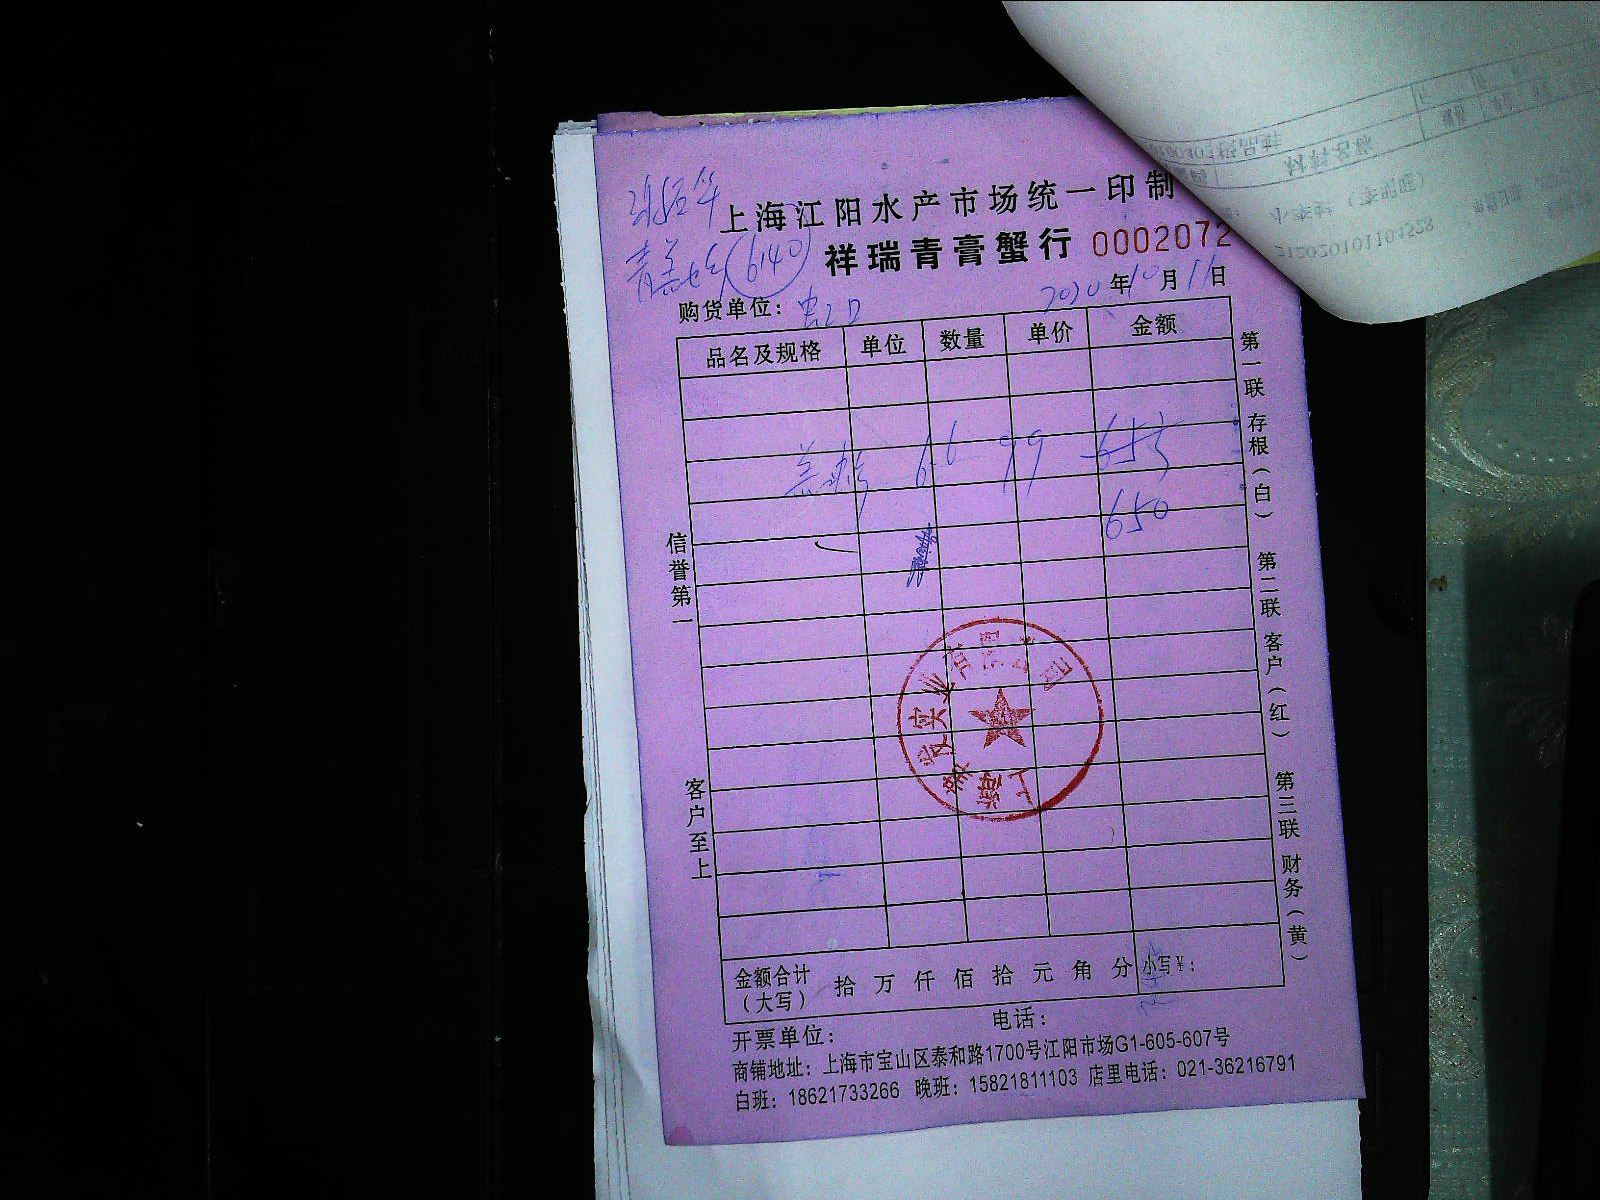 上海江阳水产市场统一印制
祥瑞青膏蟹行 0002072
6140
购货单位: 虹口
2020年10月11日
品名及规格 单位 数量 单价 金额
6.6 99 655
650
信誉第一
客户至上
第一联 存根(白) 第二联 客户(红) 第三联 财务(黄)
金额合计(大写) 拾 万 仟 佰 拾 元 角 分 小写¥:
开票单位: 电话:
商铺地址: 上海市宝山区泰和路1700号江阳市场G1-605-607号
白班: 18621733266 晚班: 15821811103 店里电话: 021-36216791